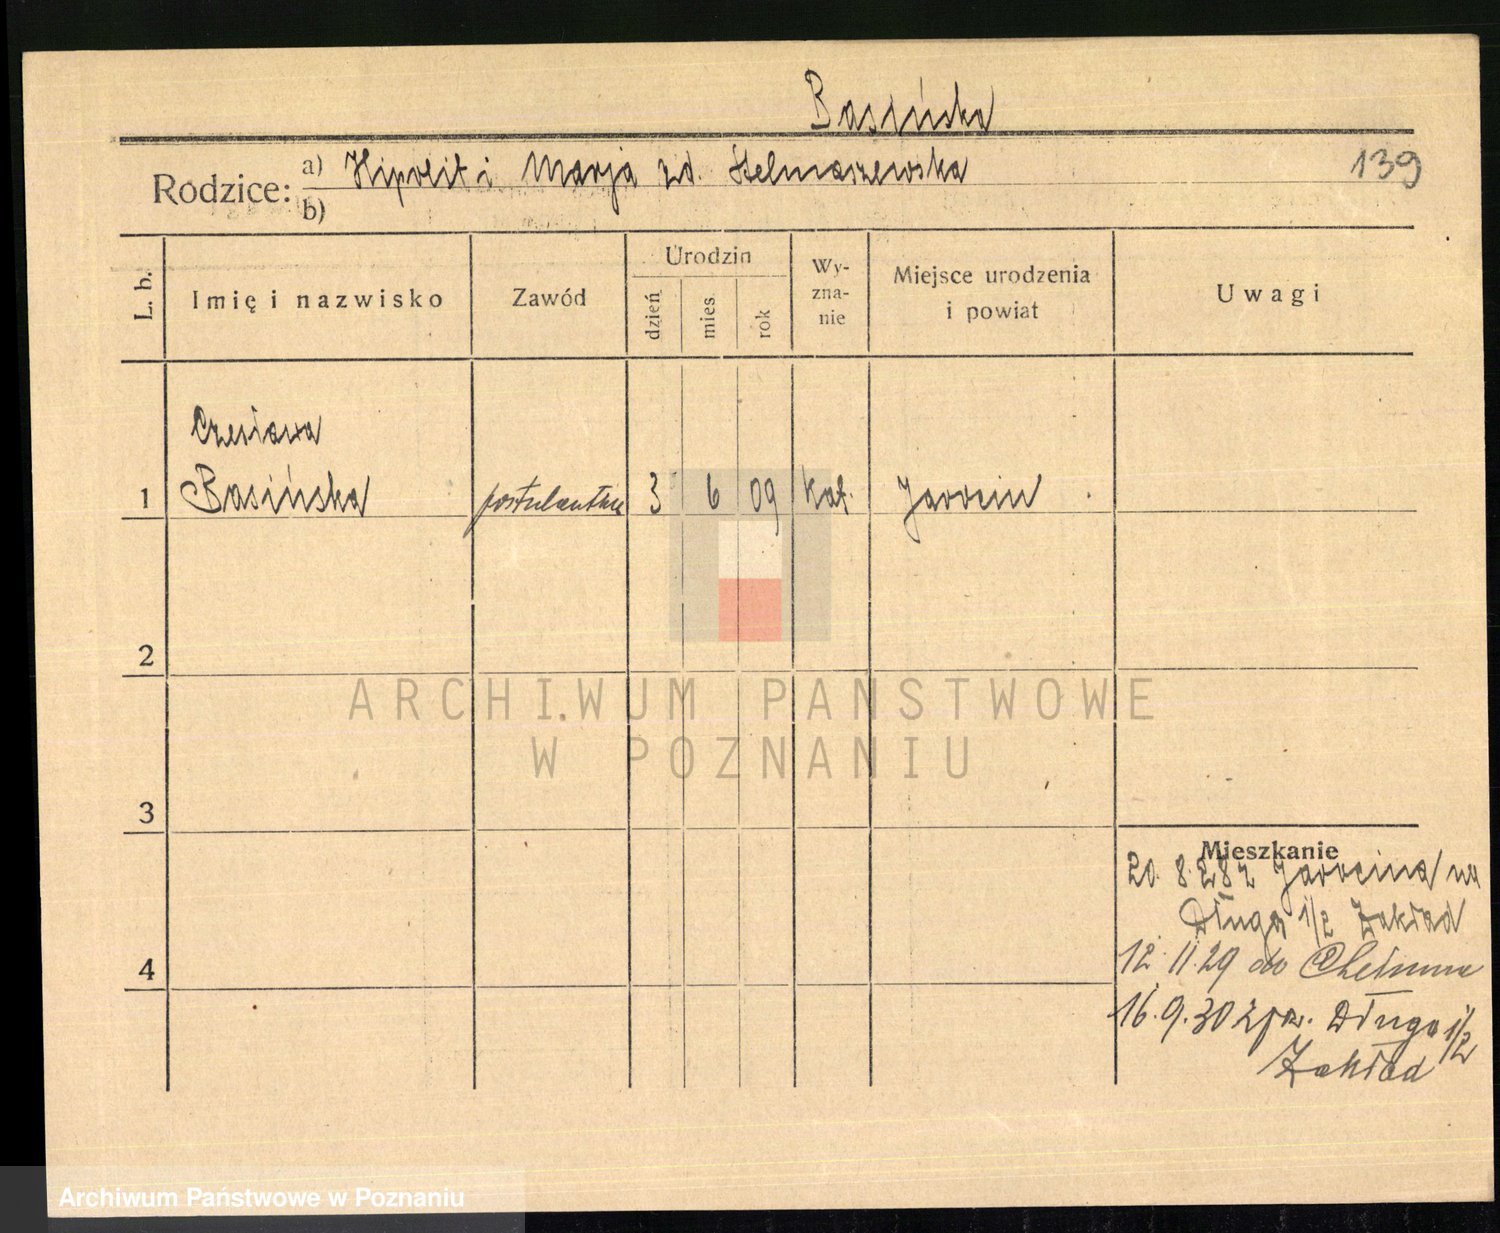 Basińska
Rodzice: a) Hipolit i Marja zd. Stelmaszewska
b)
139
L. b.
Imię i nazwisko
Zawód
Urodzin
dzień
mies.
rok
Wy-
zna-
nie
Miejsce urodzenia
i powiat
Uwagi
Czesława
1 Basińska postulantka 3 6 09 kat. Jarocin
2
3
4
ARCHIWUM PAŃSTWOWE
W POZNANIU
Mieszkanie
20. 8. 28 z Jarocina na
Długa 1/2 Zakład
12. 11. 29 do Chełmna
16. 9. 30 z pz. Długa 1/2
Zakład
Archiwum Państwowe w Poznaniu